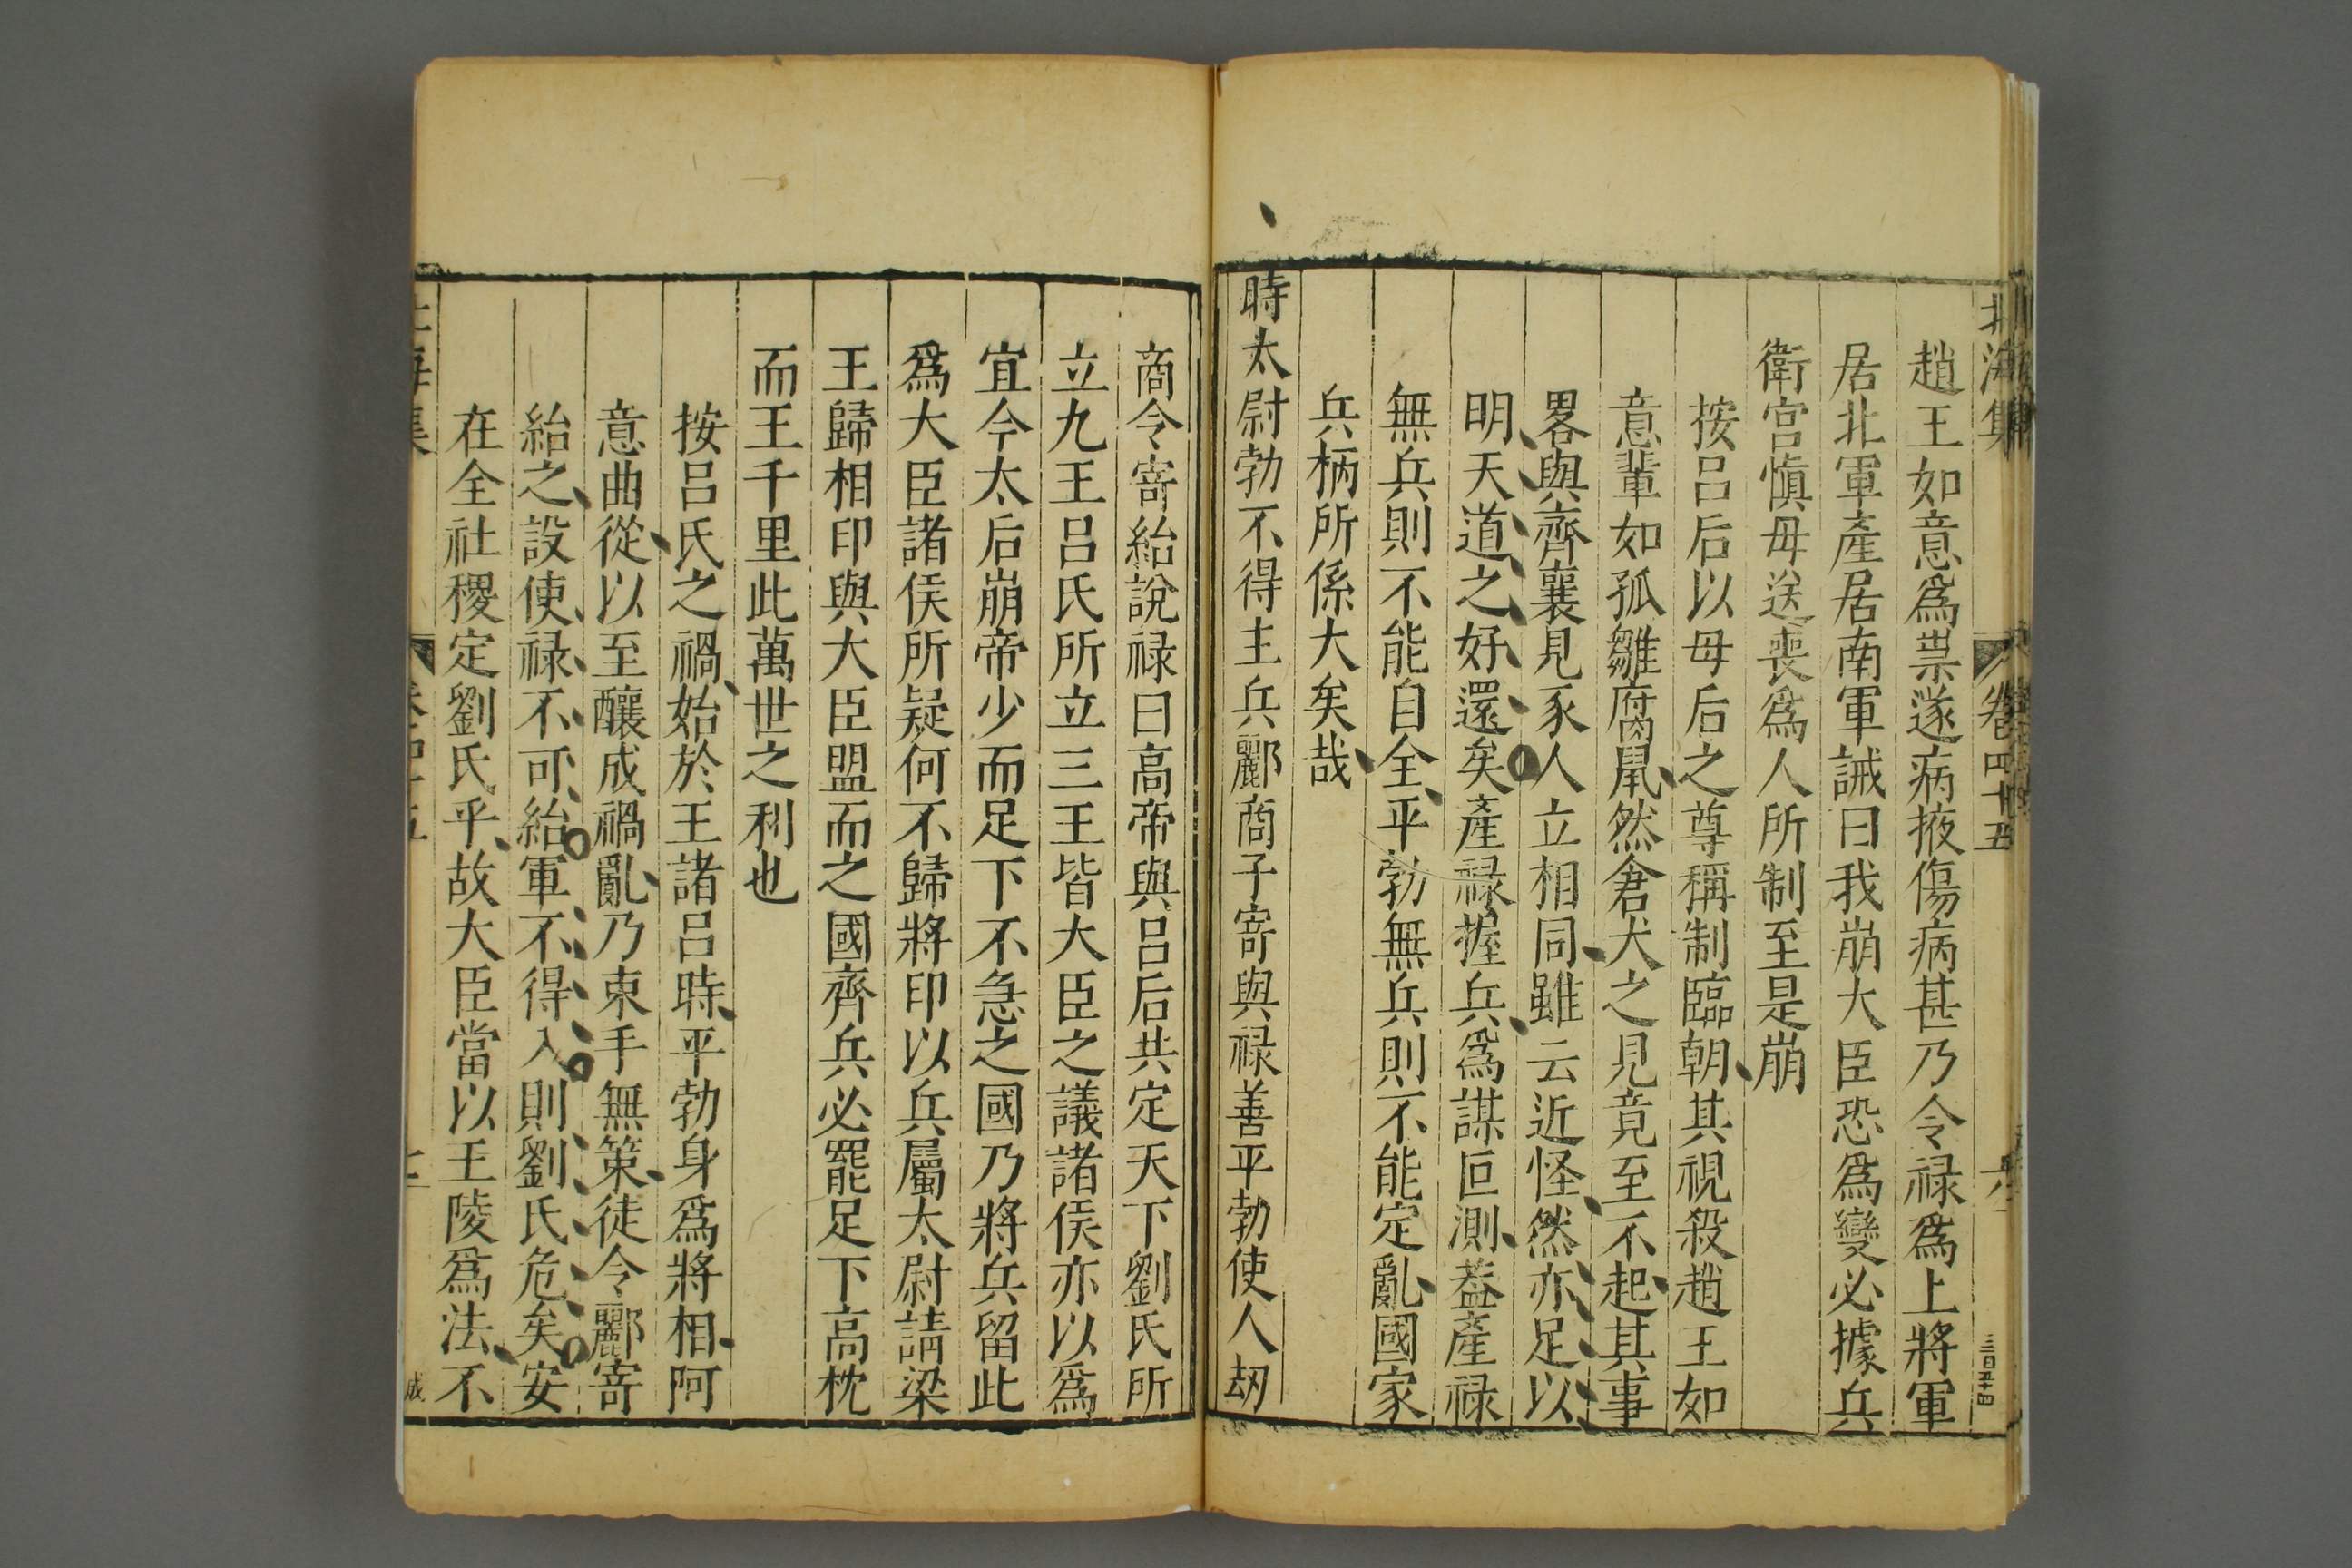 北海集
卷四十五
六
三百五十四
趙王如意爲祟遂病掖傷病甚乃令禄爲上將軍
居北軍產居南軍誡曰我崩大臣恐爲變必據兵
衛宫慎毋送喪爲人所制至是崩
按吕后以母后之尊稱制臨朝其視殺趙王如
意輩如孤雛腐鼠然倉犬之見竟至不起其事
畧與齊襄見豕人立相同雖云近怪然亦足以
明天道之好還矣產禄握兵爲謀叵測葢產禄
無兵則不能自全平勃無兵則不能定亂國家
兵柄所係大矣哉
時太尉勃不得主兵酈商子寄與禄善平勃使人刼
商令寄紿說禄曰高帝與吕后共定天下劉氏所
立九王吕氏所立三王皆大臣之議諸侯亦以爲
宜今太后崩帝少而足下不急之國乃將兵留此
爲大臣諸侯所疑何不歸將印以兵屬太尉請梁
王歸相印與大臣盟而之國齊兵必罷足下高枕
而王千里此萬世之利也
按吕氏之禍始於王諸吕時平勃身爲將相阿
意曲從以至釀成禍亂乃束手無策徒令酈寄
紿之設使禄不可紿軍不得入則劉氏危矣安
在全社稷定劉氏乎故大臣當以王陵爲法不
成